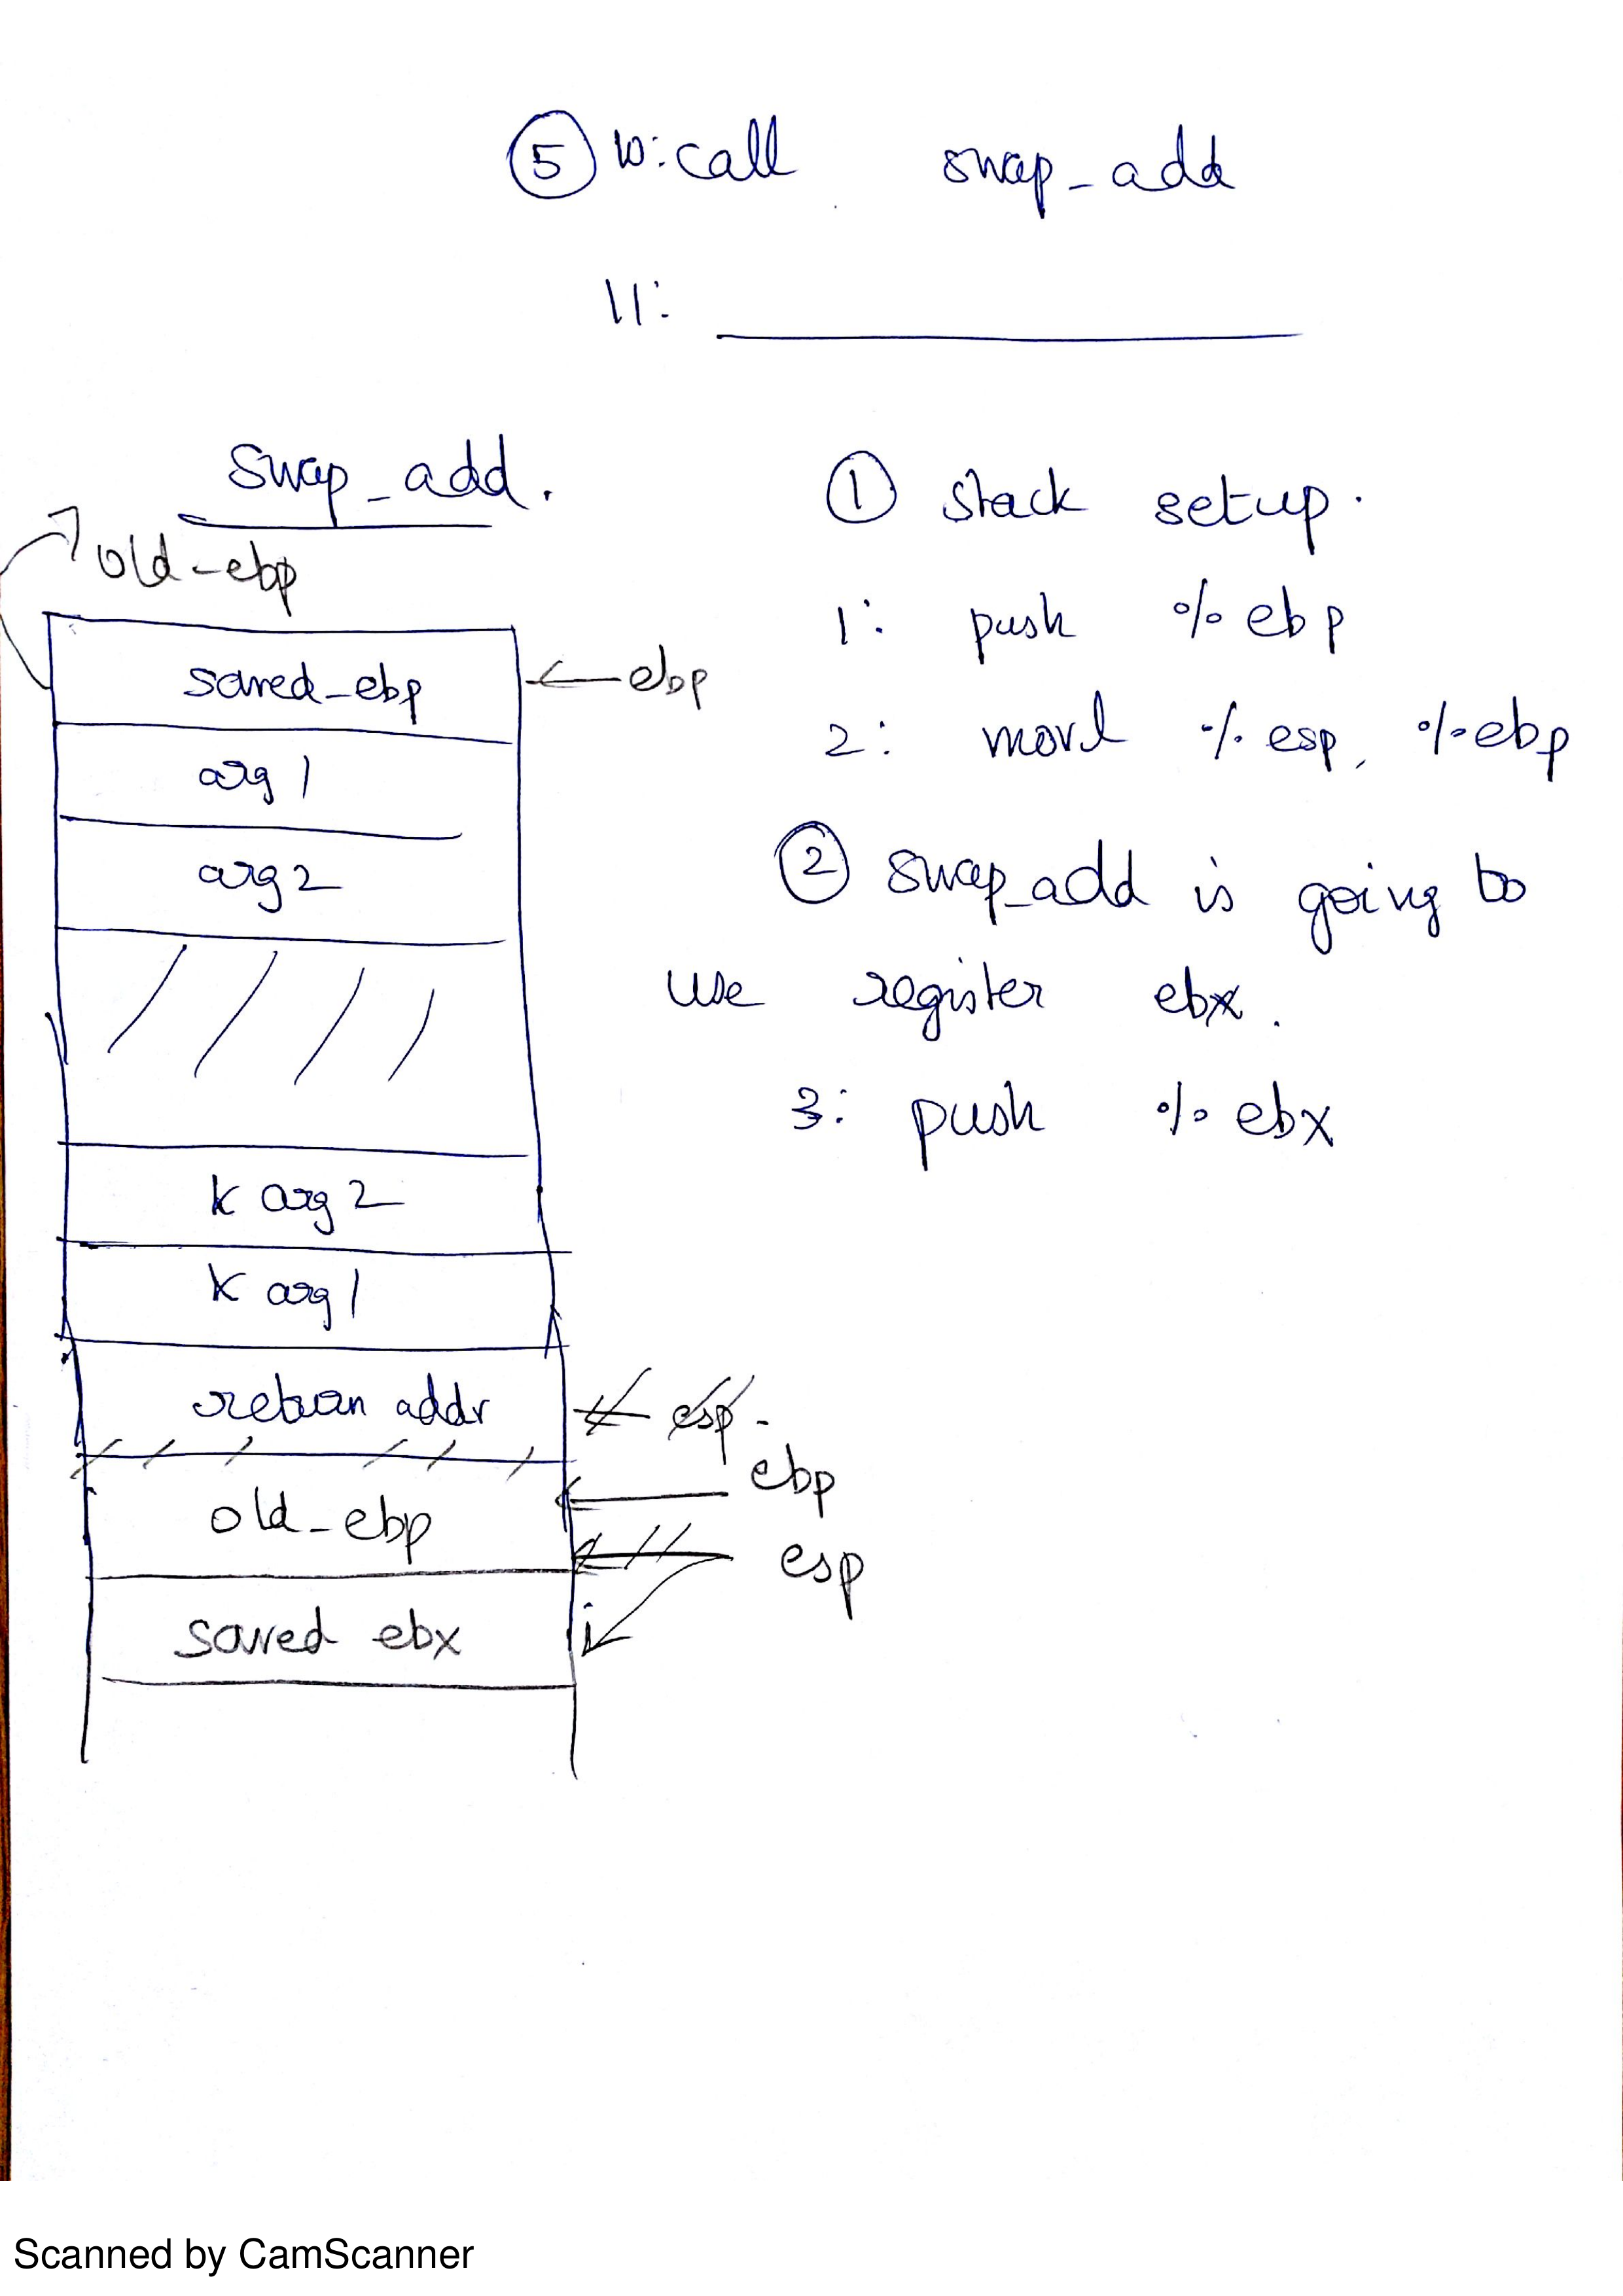 ⑤ 10: call swap_add
11:
swap_add.
old-ebp
saved-ebp ← ebp
arg 1
arg 2
k arg 2
k arg 1
return addr ← esp.
ebp
old-ebp
esp
saved ebx
① stack setup.
1: push %ebp
2: movl %esp, %ebp
② swap_add is going to
use register ebx.
3: push %ebx
Scanned by CamScanner